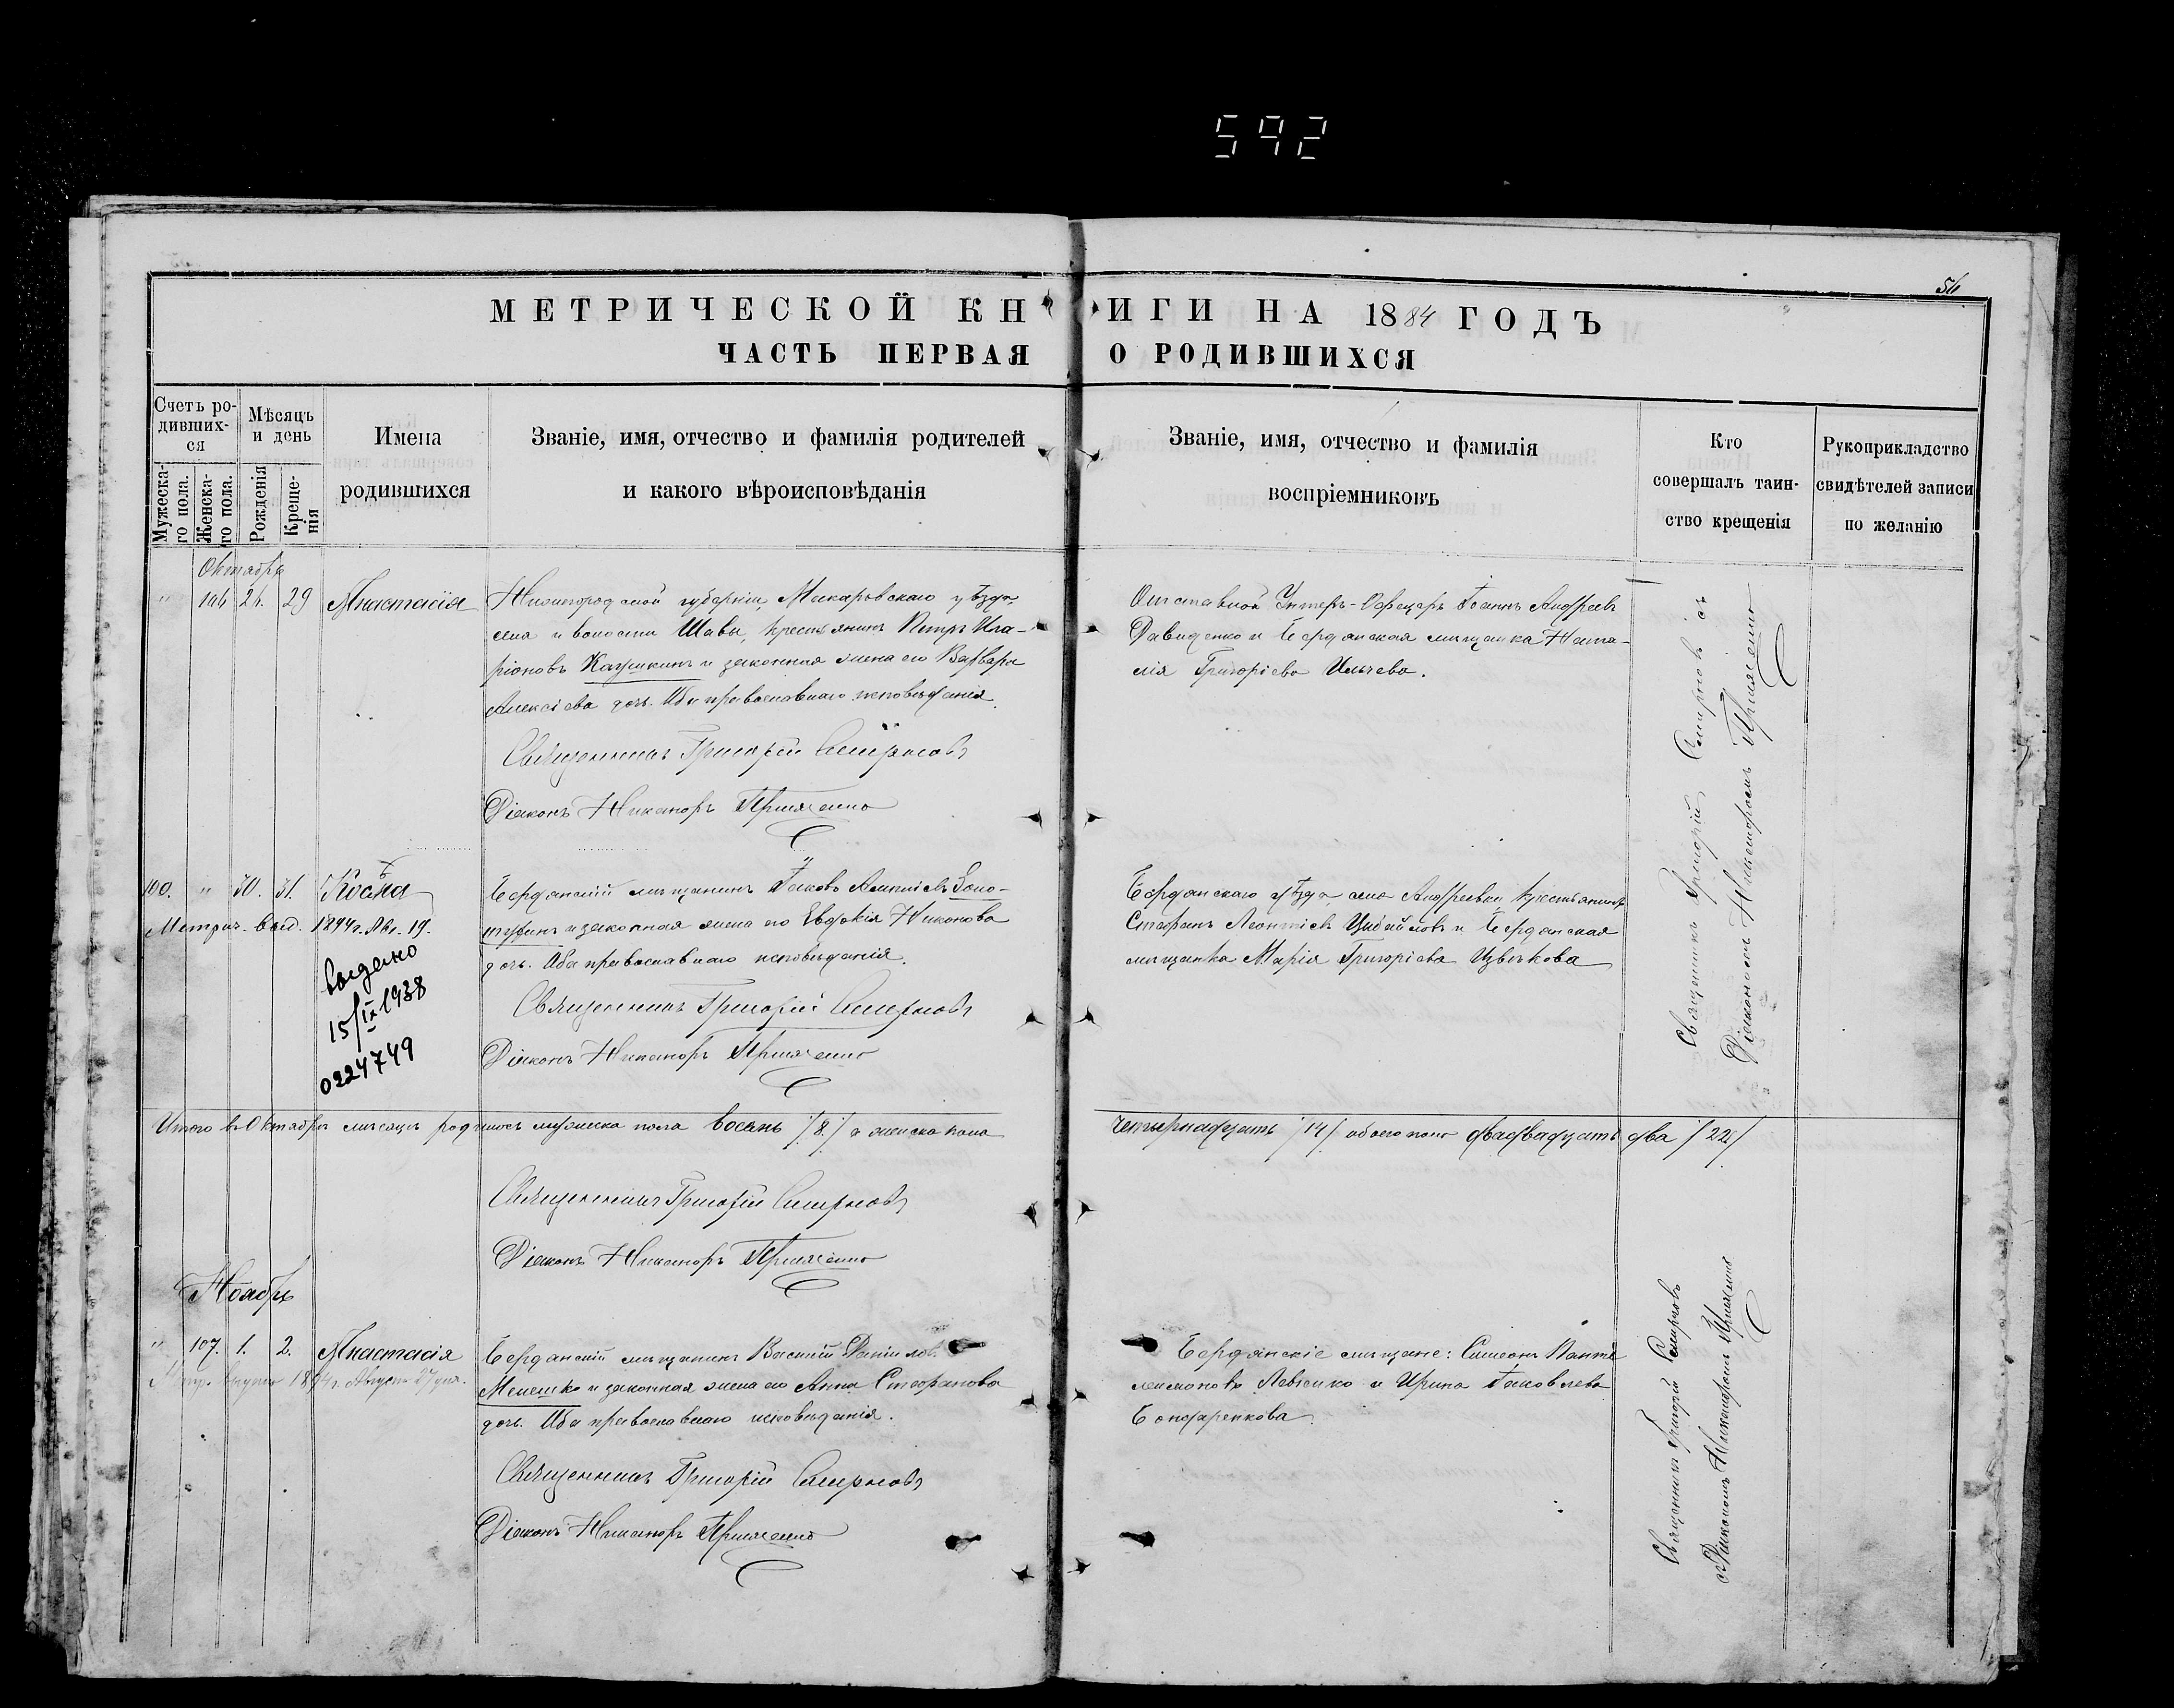 592
56
МЕТРИЧЕСКОЙ КНИГИ НА 1884 ГОДЪ
ЧАСТЬ ПЕРВАЯ О РОДИВШИХСЯ
Счетъ родившихся
Мужескаго пола.
Женскаго пола.
Мѣсяцъ и день
Рожденія
Крещенія
Имена родившихся
Званіе, имя, отчество и фамилія родителей
и какого вѣроисповѣданія
Званіе, имя, отчество и фамилія
воспріемниковъ
Кто
совершалъ таин-
ство крещенія
Рукоприкладство
свидѣтелей записи
по желанію
Октября
" 106 26. 29 Анастасія
Нижегородской губерніи, Макарьевскаго уѣзда,
села и волости Шавы, крестьянинъ Петръ Ила-
ріоновъ и законная жена его Варвара
Алексіева дочь. Оба православнаго исповѣданія.
Священникъ Григорій Смирновъ
Діаконъ Никаноръ
Отставной Унтеръ-Офицеръ Іоаннъ Андреевъ
Давиденко и Бердянская мѣщанка Ната-
лія Григоріева Ильчева.
Священникъ Григорій Смирновъ съ
Діакономъ Никаноромъ
100. " 30. 31. Косма
Метрич. выд. 19.
Выдано
15/IX 1938
0224749
Бердянскій мѣщанинъ Іаковъ
и законная жена его Евдокія Никонова
дочь. Оба православнаго исповѣданія.
Священникъ Григорій Смирновъ
Діаконъ Никаноръ
Бердянскаго уѣзда села Андреевки, крестьянинъ
Стефанъ Леонтіевъ и Бердянская
мѣщанка Марія Григоріева Цвѣткова
Итого въ Октябрѣ мѣсяцѣ родилось мужеска пола восемь /8/ а женска пола
четырнадцать /14/ обоего пола двадвадцать два /22/
Священникъ Григорій Смирновъ
Діаконъ Никаноръ
Ноябрь
" 107. 1. 2. Анастасія
Августа 27 дня.
Бердянскій мѣщанинъ Василій Даниловъ
Мелешко и законная жена его Анна Стефанова
дочь. Оба православнаго исповѣданія.
Священникъ Григорій Смирновъ
Діаконъ Никаноръ
Бердянскіе мѣщане: Симеонъ Панте-
леимоновъ Левченко и Ирина Іаковлева
Бондаренкова.
Священникъ Григорій Смирновъ
съ Діакономъ Никаноромъ